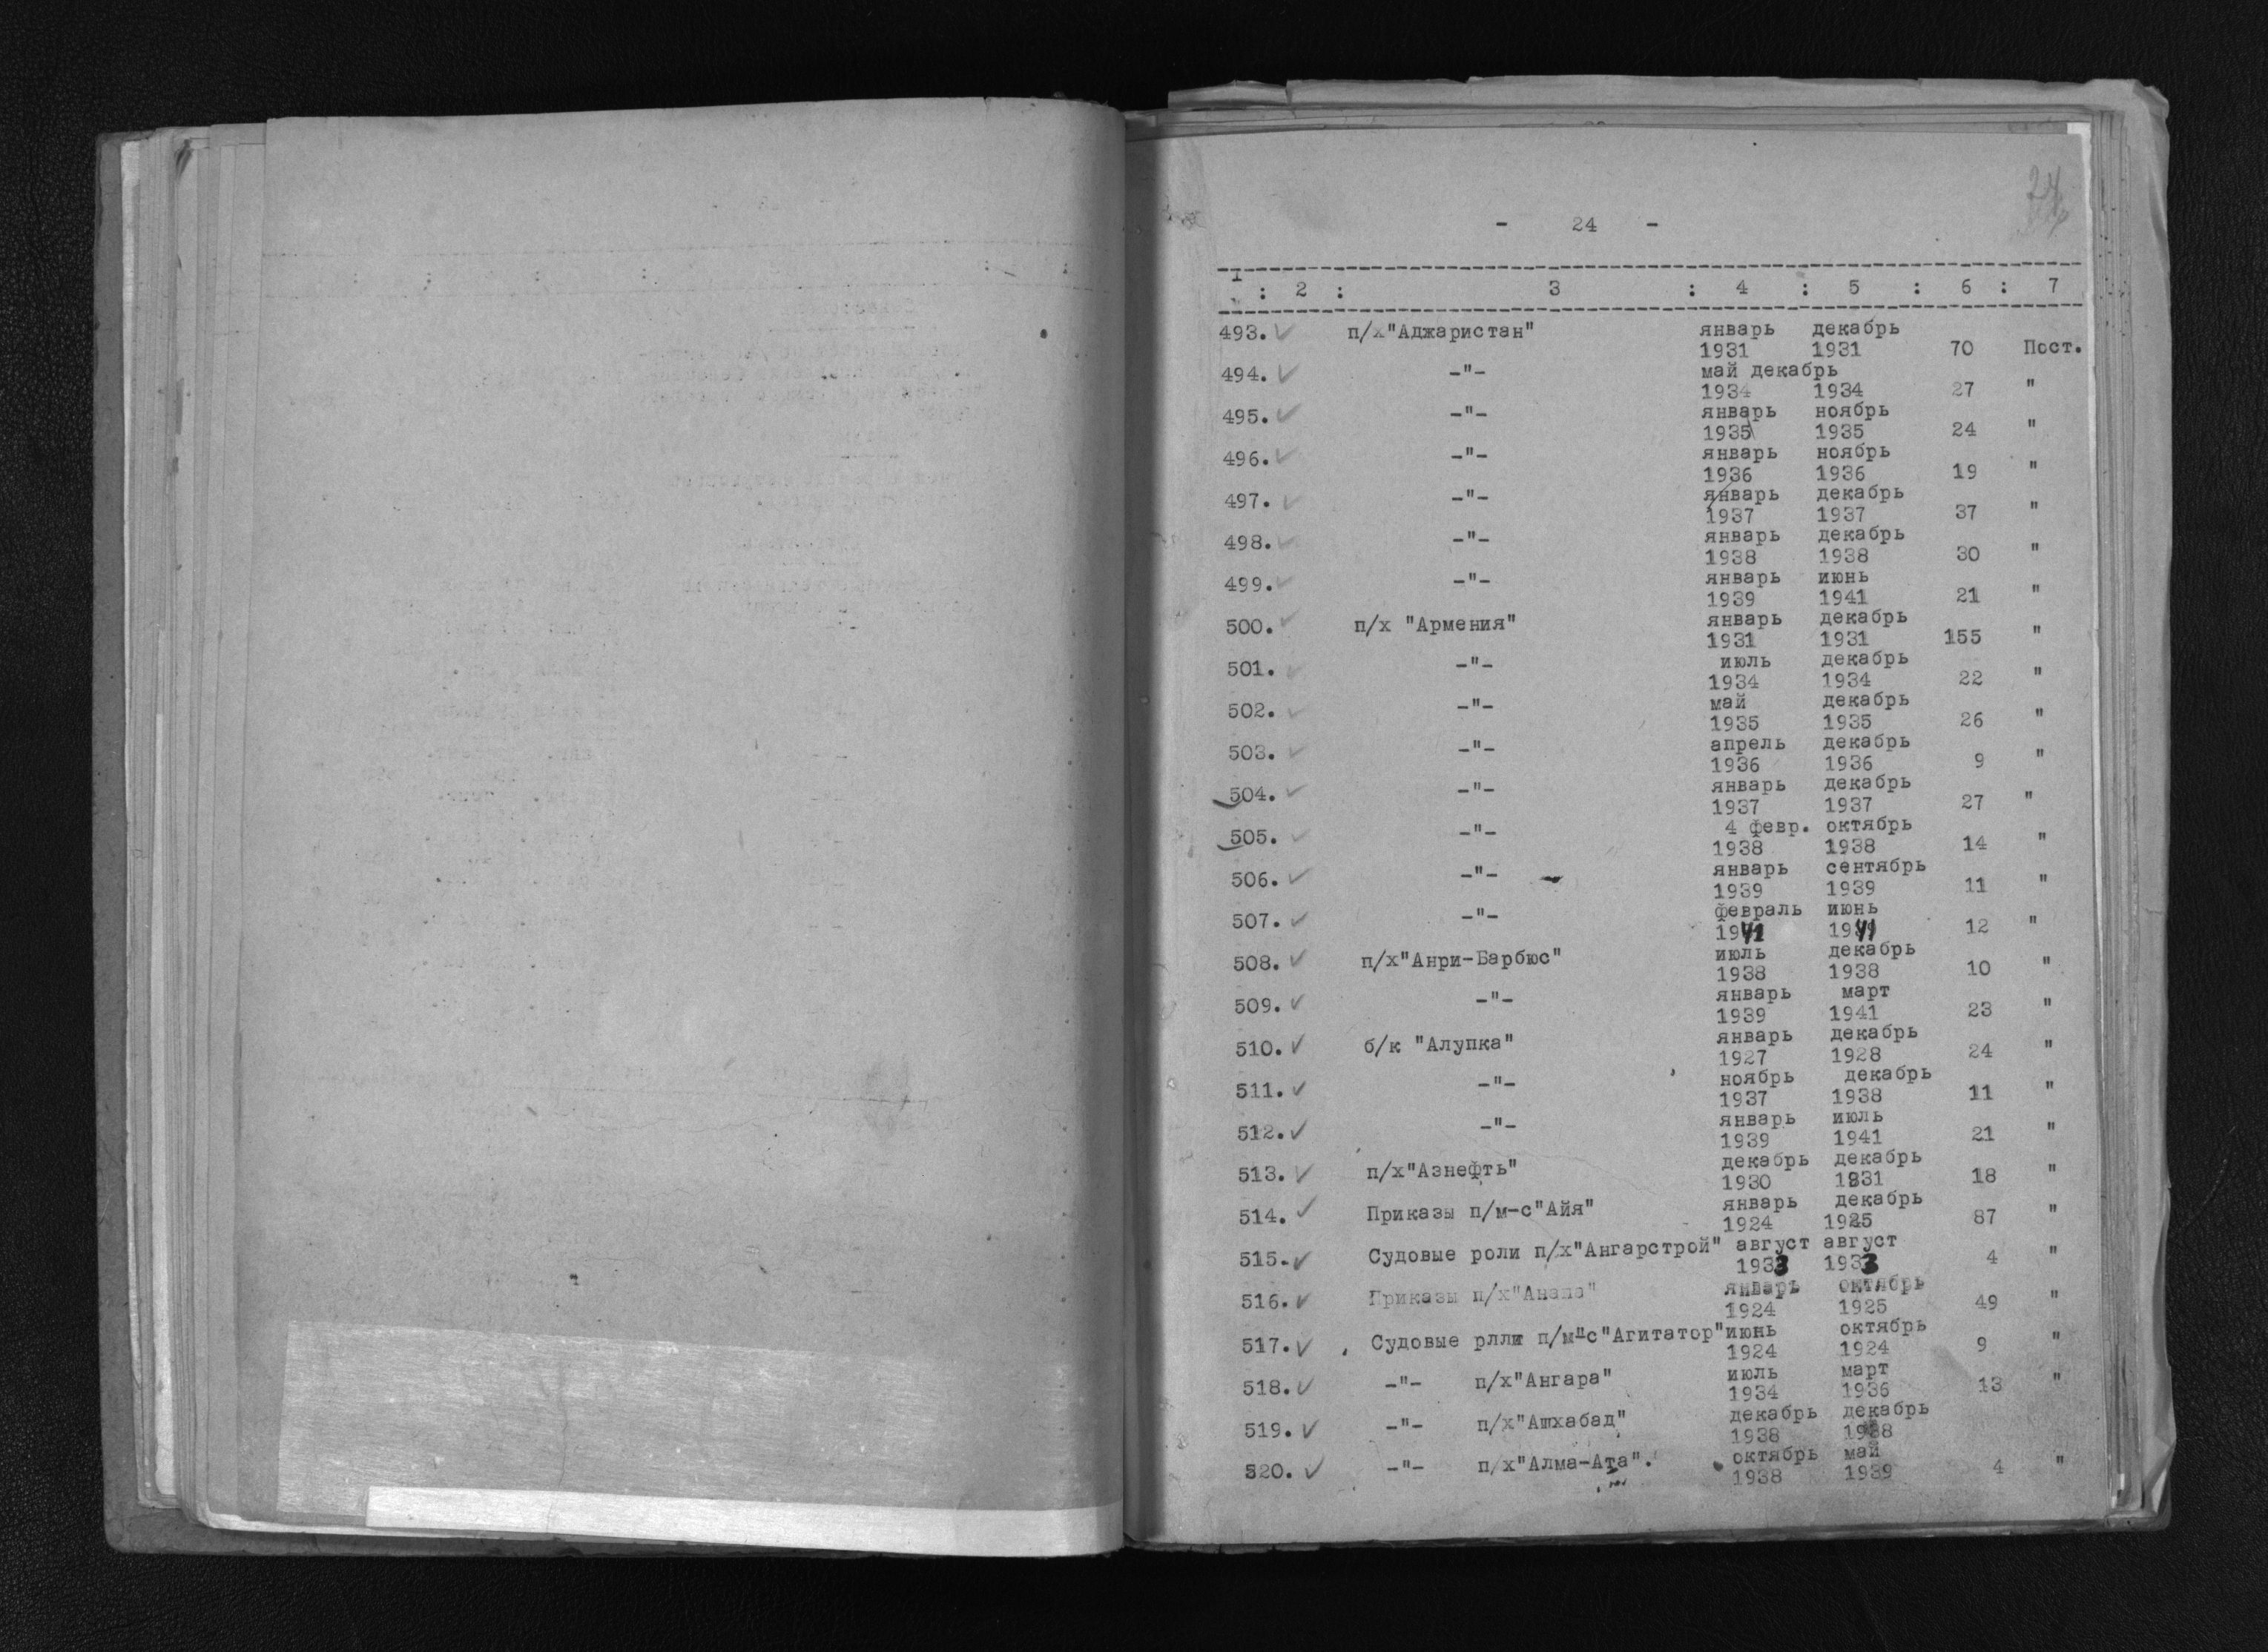 24
- 24 -
1 : 2 : 3 : 4 : 5 : 6 : 7
493. п/х"Аджаристан" январь декабрь
1931 1931 70 Пост.
494. -"- май декабрь
1934 1934 27 "
495. -"- январь ноябрь
1935 1935 24 "
496. -"- январь ноябрь
1936 1936 19 "
497. -"- январь декабрь
1937 1937 37 "
498. -"- январь декабрь
1938 1938 30 "
499. -"- январь июнь
1939 1941 21 "
500. п/х "Армения" январь декабрь
1931 1931 155 "
501. -"- июль декабрь
1934 1934 22 "
502. -"- май декабрь
1935 1935 26 "
503. -"- апрель декабрь
1936 1936 9 "
504. -"- январь декабрь
1937 1937 27 "
505. -"- 4 февр. октябрь
1938 1938 14 "
506. -"- январь сентябрь
1939 1939 11 "
507. -"- февраль июнь
1941 1941 12 "
508. п/х"Анри-Барбюс" июль декабрь
1938 1938 10 "
509. -"- январь март
1939 1941 23 "
510. б/к "Алупка" январь декабрь
1927 1928 24 "
511. -"- ноябрь декабрь
1937 1938 11 "
512. -"- январь июль
1939 1941 21 "
513. п/х"Азнефть" декабрь декабрь
1930 1931 18 "
514. Приказы п/м-с"Айя" январь декабрь
1924 1925 87 "
515. Судовые роли п/х"Ангарстрой" август август
1933 1933 4 "
516. Приказы п/х" январь октябрь
1924 1925 49 "
517. Судовые рлли п/м"с"Агитатор" июнь октябрь
1924 1924 9 "
518. -"- п/х"Ангара" июль март
1934 1936 13 "
519. -"- п/х"Ашхабад" декабрь декабрь
1938 1938
520. -"- п/х"Алма-Ата". октябрь май
1938 1939 4 "